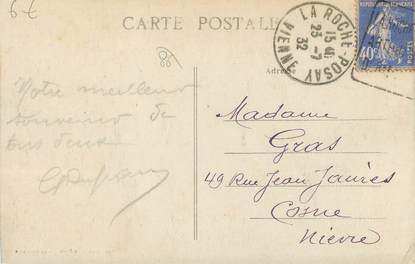 6€
CARTE POSTALE
LA ROCHE-POSAY VIENNE
15 40
23 -7
32
40c
Adresse
Notre meilleur
souvenir de
tous deux
Madame
Gras
49 Rue Jean Jaurès
Cosne
Nièvre